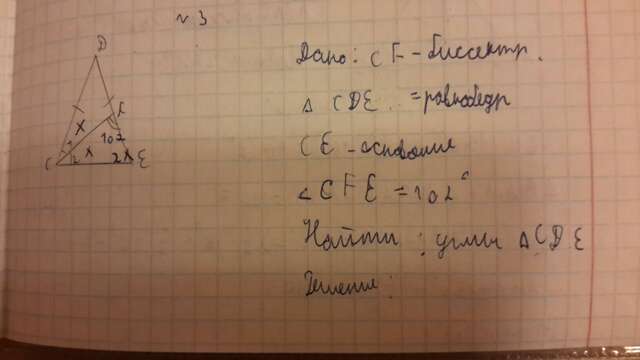 № 3
D
F
x
102
C 1 2 x 2x E
Дано: CF - биссектр.
△ CDE = равнобедр
CE - основание
∠ CFE = 102°
Найти: углы △CDE
Решение: